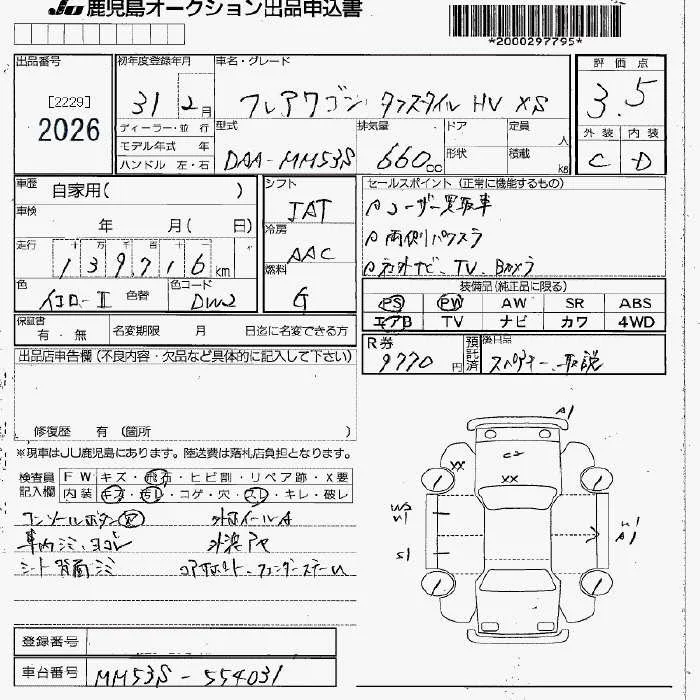 JU 鹿児島オークション出品申込書
*2000297795*
出品番号
[2229]
2026
初年度登録年月
31 2月
ディーラー・並 行
モデル年式 年
ハンドル 左・右
車名・グレード
フレアワゴン タフスタイル HV XS
型式
DAA-MM53S
排気量
660cc
ドア
形状
定員
人
積載
kg
評価点
3.5
外装 内装
C D
車歴
自家用( )
車検
年 月( 日)
走行
139,716km
色
イエローII
色替
色コード
DW2
シフト
IAT
冷房
AAC
燃料
G
セールスポイント (正常に機能するもの)
ユーザー買取車
両側パワスラ
社外ナビ、TV、Bカメラ
装備品(純正品に限る)
PS PW AW SR ABS
エアB TV ナビ カワ 4WD
保証書
有・無
名変期限 月 日迄に名変できる方
R券
9770円
預託済
後日品
スペアキー、取説
出品店申告欄(不良内容・欠品など具体的に記入して下さい)
修復歴 有(箇所 )
※現車はJU鹿児島にあります。陸送費は落札店負担となります。
検査員記入欄
FW キズ・飛石・ヒビ割・リペア跡・X要
内装 キズ・汚レ・コゲ・穴・スレ・キレ・破レ
コンソールボタン
車内ゴミ、ヨゴレ
シート背面ゴミ
外ホイールA
A1
C2
XX
XX
W2
U1
S1
U1
A1
登録番号
車台番号
MM53S-554031